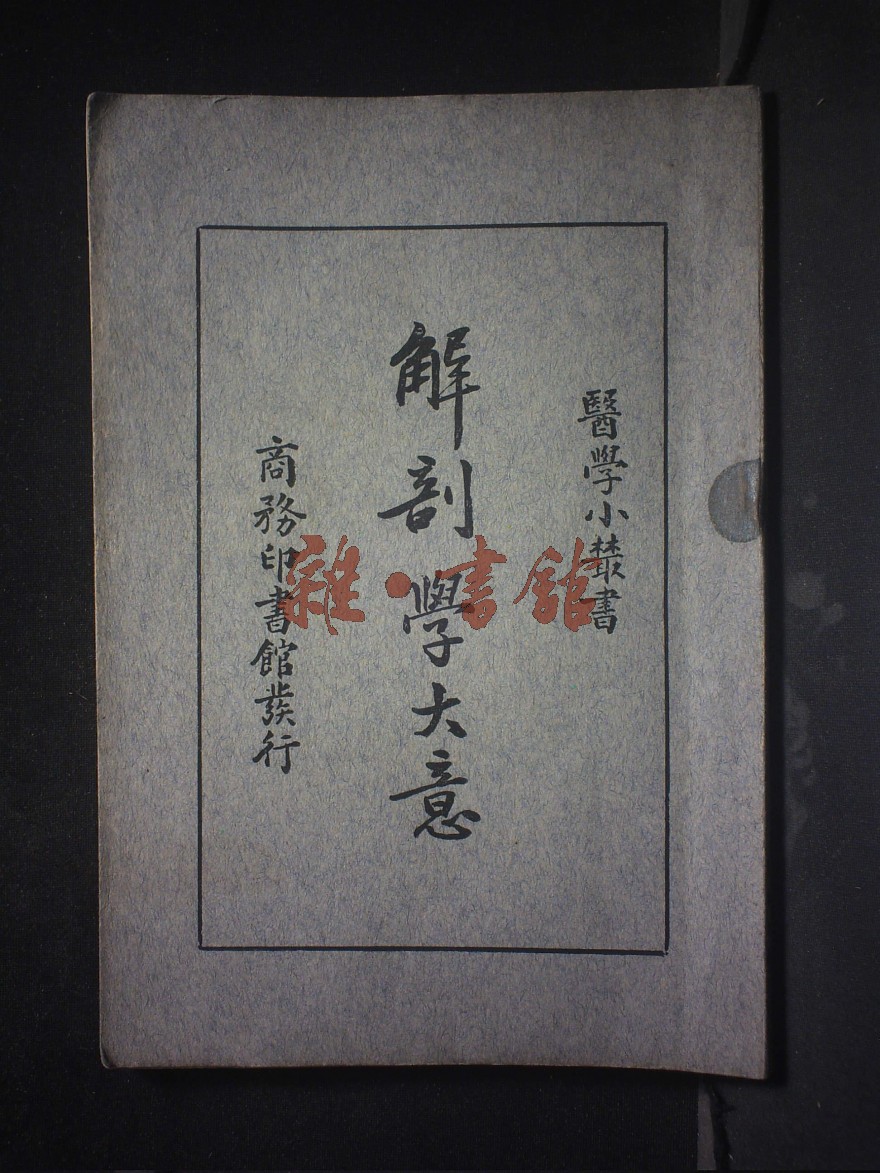 醫學小叢書
解剖學大意
商務印書館發行
雜·書館